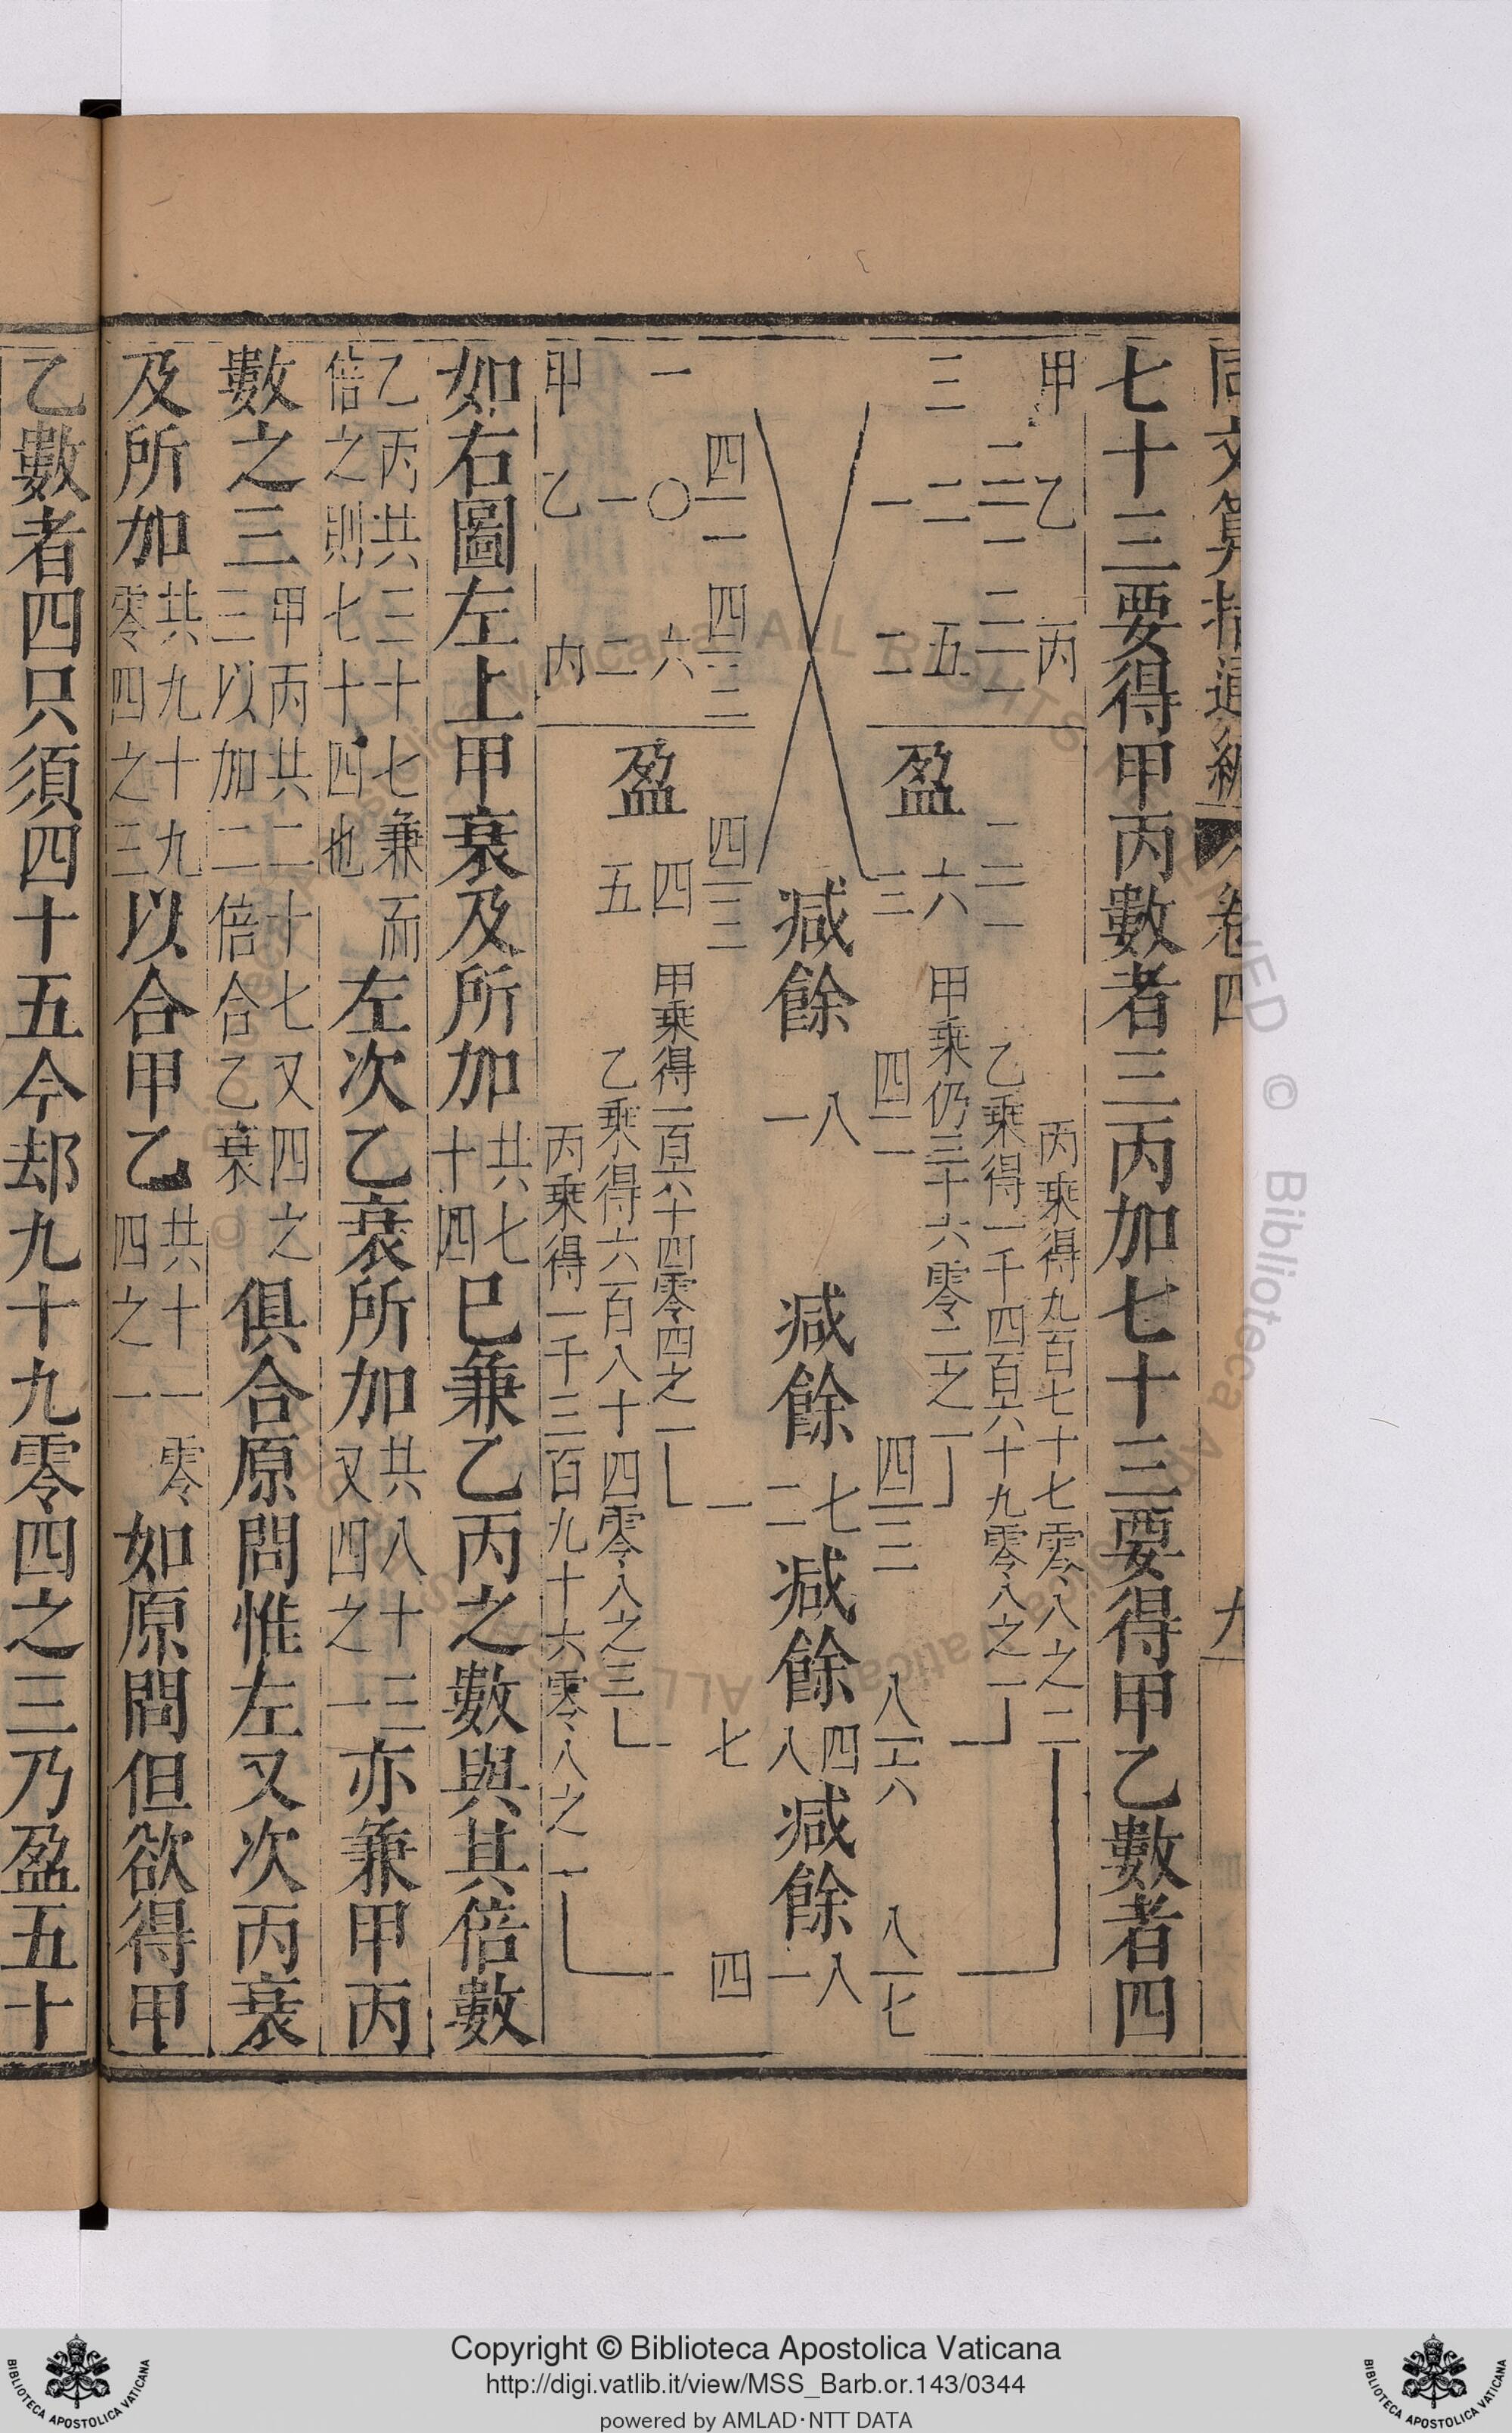 同文算指通編 卷四 九
七十三要得甲丙數者三丙加七十三要得甲乙數者四
甲 乙 丙 丙乘得九百七十七零八之二
乙乘得一千四百六十九零八之一
三 二 五 盈 六 甲乘仍三十六零二之一
一 二 三 四二一 四一三 八一六 八一七
減餘 一八 減餘 二七 減餘 八四 減餘 一八
一 七 四
一 〇 六 四 甲乘得二百六十四零四之一
一 二 盈 五 乙乘得六百八十四零八之三
甲 乙 丙 丙乘得一千三百九十六零八之一
如右圖左上甲衰及所加共七十四巳兼乙丙之數與其倍數
乙丙共三十七兼而倍之則七十四也左次乙衰所加共八十三又四之一亦兼甲丙
數之三甲丙共二十七又四之三以加二倍合乙衰俱合原問惟左又次丙衰
及所加共九十九零四之三以合甲乙共十一零四之一如原問但欲得甲
乙數者四只須四十五今却九十九零四之三乃盈五十
Copyright © Biblioteca Apostolica Vaticana
http://digi.vatlib.it/view/MSS_Barb.or.143/0344
powered by AMLAD·NTT DATA
BIBLIOTECA APOSTOLICA VATICANA
BIBLIOTECA APOSTOLICA VATICANA